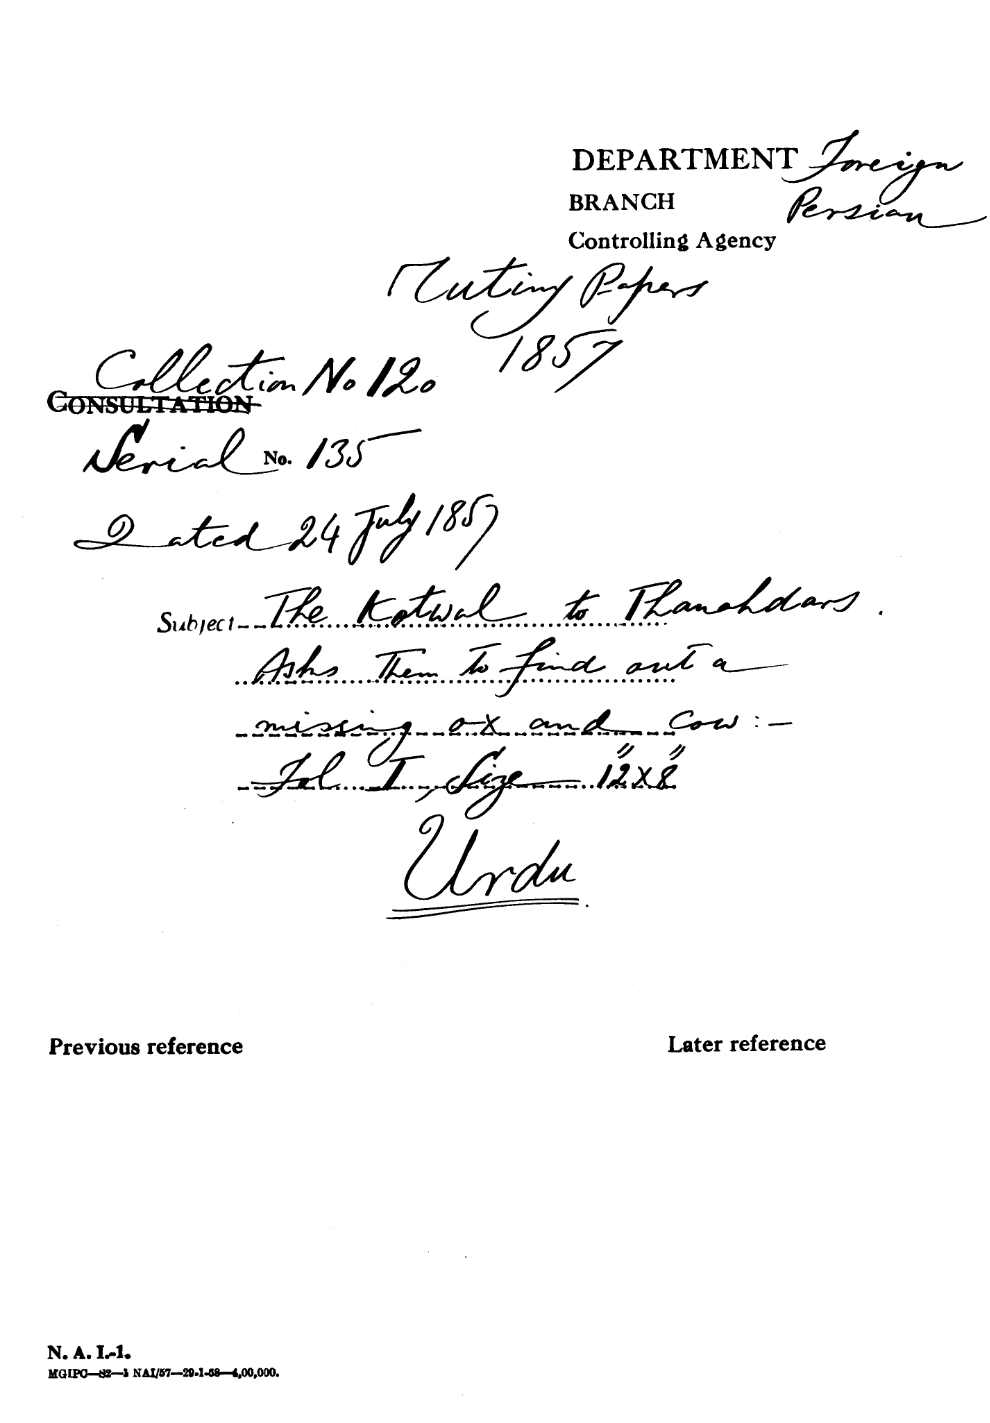 DEPARTMENT Foreign
BRANCH Persian
Controlling Agency
Mutiny Papers
1857
Collection No 120
CONSULTATION
Serial No. 135
Dated 24 July 1857
Subject The Kotwal to Thanahdars.
Asks Them to find out a
missing ox and Cow :-
Fol. I, Size 12" x 8"
Urdu
Previous reference Later reference
N. A. I.-1.
MGIPC—S2—1 NAI/57—29-1-58—4,00,000.